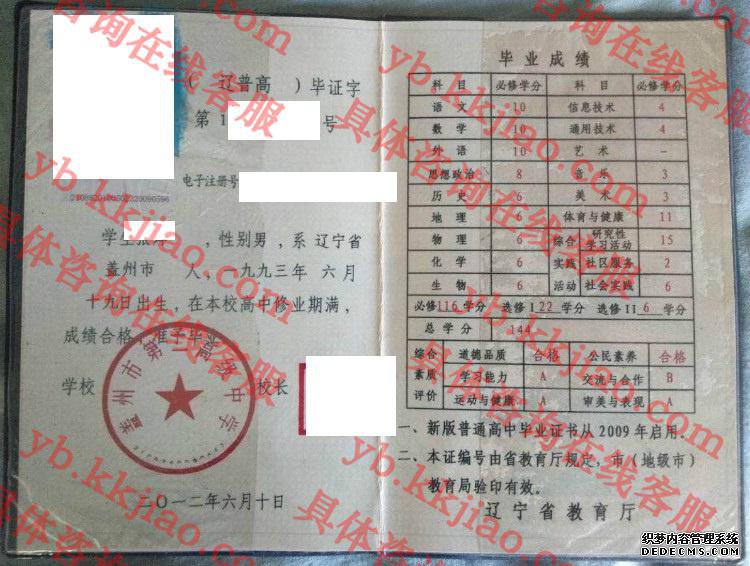 ( 辽普高 ) 毕证字
第1 号
电子注册号
学生 ,性别男,系 辽宁省
盖州市 人,一九九三年 六月
十九日出生,在本校高中修业期满,
成绩合格,准予毕业
学校 校长
二〇一二年六月十日
毕业成绩
科 目 必修学分 科 目 必修学分
语 文 10 信息技术 4
数 学 10 通用技术 4
外 语 10 艺 术 —
思想政治 8 音 乐 3
历 史 6 美 术 3
地 理 6 体育与健康 11
物 理 6 综合 研究性学习活动 15
化 学 6 实践 社区服务 2
生 物 6 活动 社会实践 6
必修116 学分 选修I 22 学分 选修II 6 学分
总 学 分 144
综合 道德品质 合格 公民素养 合格
素质 学习能力 A 交流与合作 B
评价 运动与健康 A 审美与表现 A
一、新版普通高中毕业证书从2009年启用。
二、本证编号由省教育厅规定,市(地级市)
教育局验印有效。
辽宁省教育厅
具体咨询在线客服
yb.kkjiao.com
织梦内容管理系统
DEDECMS.COM